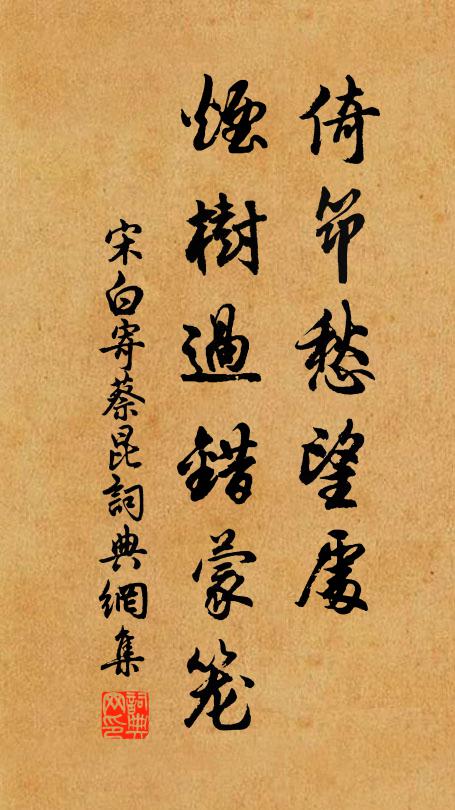 倚筇愁望處
煙樹過錯蒙笼
宋白寄蔡昆詞典網集
詞典网印